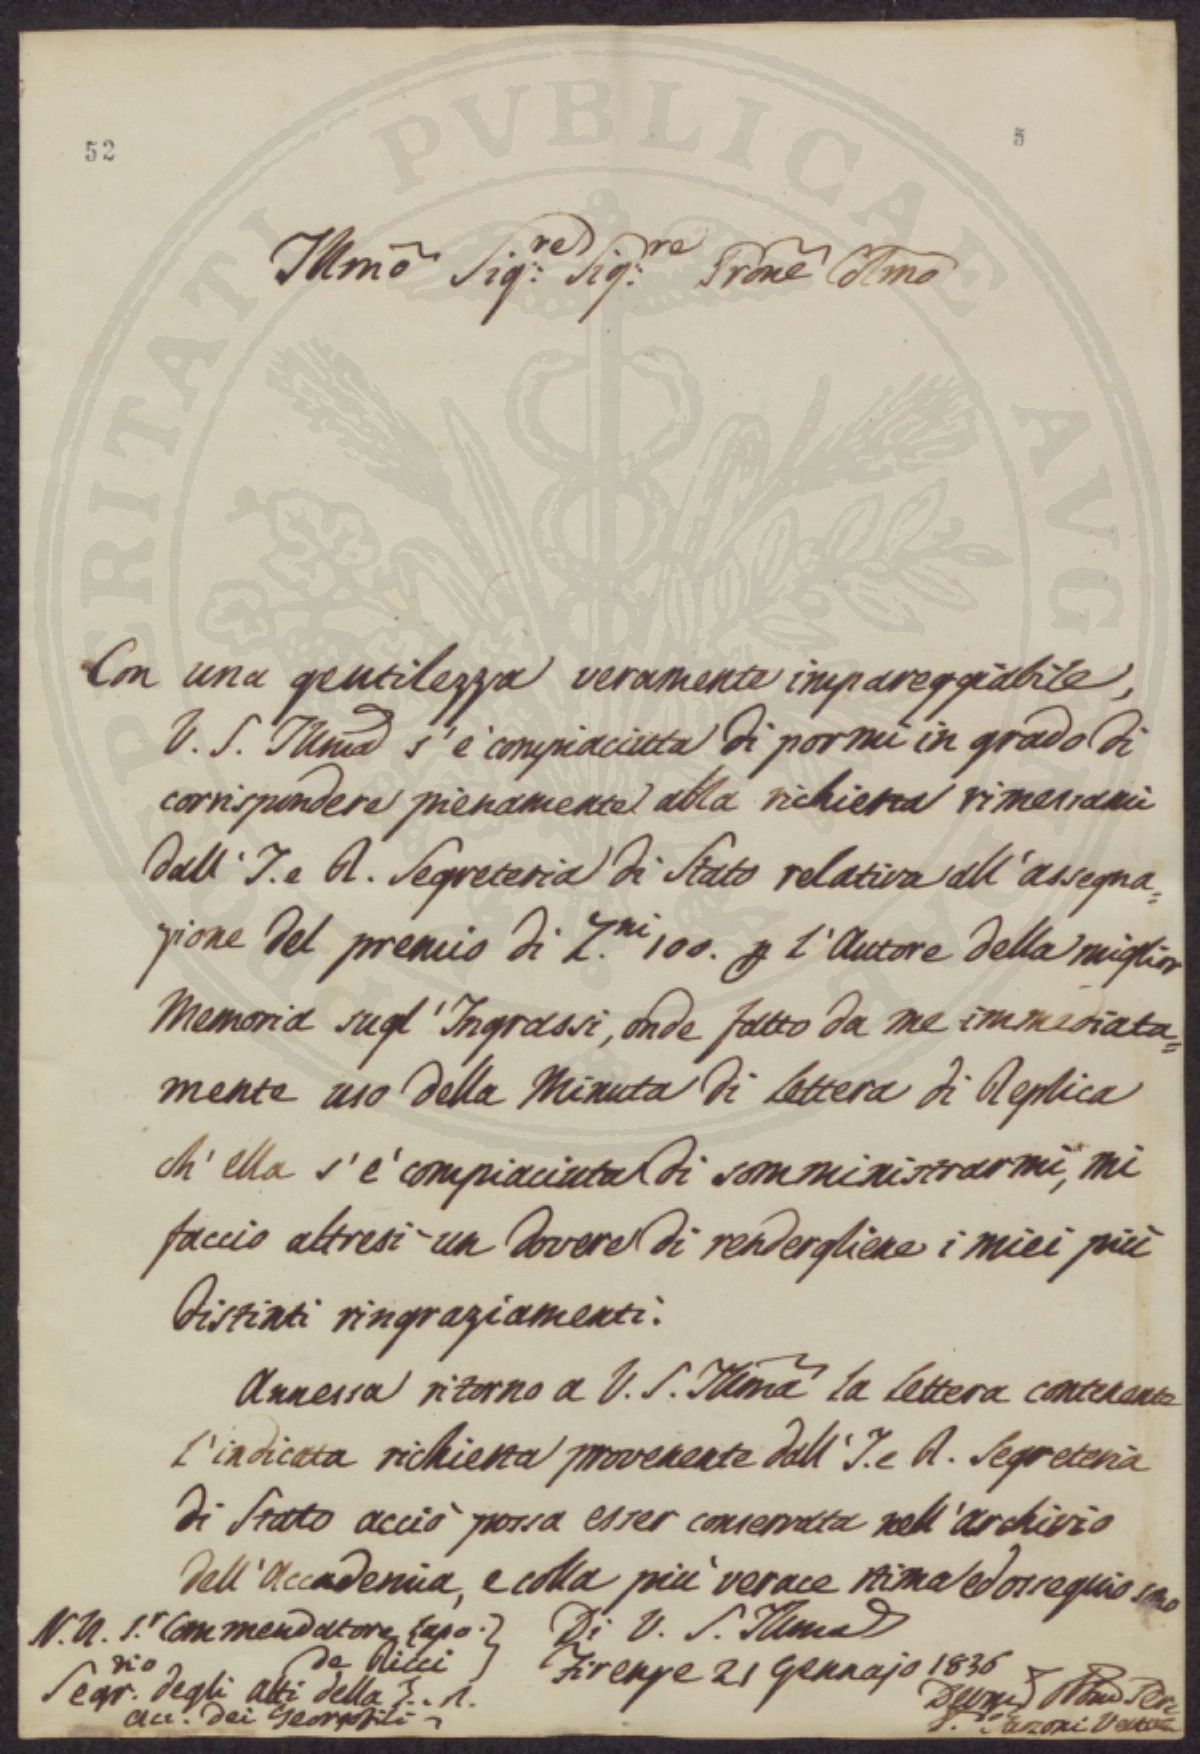 PROSPERITATI PVBLICAE AVGENDAE
52
5
Illmo Sig.re Sig.re Prone Colmo
Con una gentilezza veramente impareggiabile,
V. S. Illma s'è compiaciuta di pormi in grado di
corrispondere pienamente alla richiesta rimessami
dall' I. e R. Segreteria di Stato relativa all'assegna=
zione del premio di Z.ni 100. p l'Autore della miglior
Memoria sugl'Ingrassi, onde fatto da me immediata=
mente uso della Minuta di lettera di Replica
ch'ella s'è compiaciuta di somministrarmi, mi
faccio altresi un dovere di rendergliene i miei più
distinti ringraziamenti.
Annessa ritorno a V. S. Illma la lettera contenente
l'indicata richiesta proveniente dall' I. e R. Segreteria
di Stato acciò possa esser conservata nell'archivio
dell'Accademia, e colla più verace stima ed ossequio sono
N. U. S.r Commendatore Lapo
de Ricci
Segr.rio degli atti della I. R.
Acc. dei Georgofili
Di V. S. Illma
Firenze 21 Gennajo 1836
Devmo Obbmo Serv.